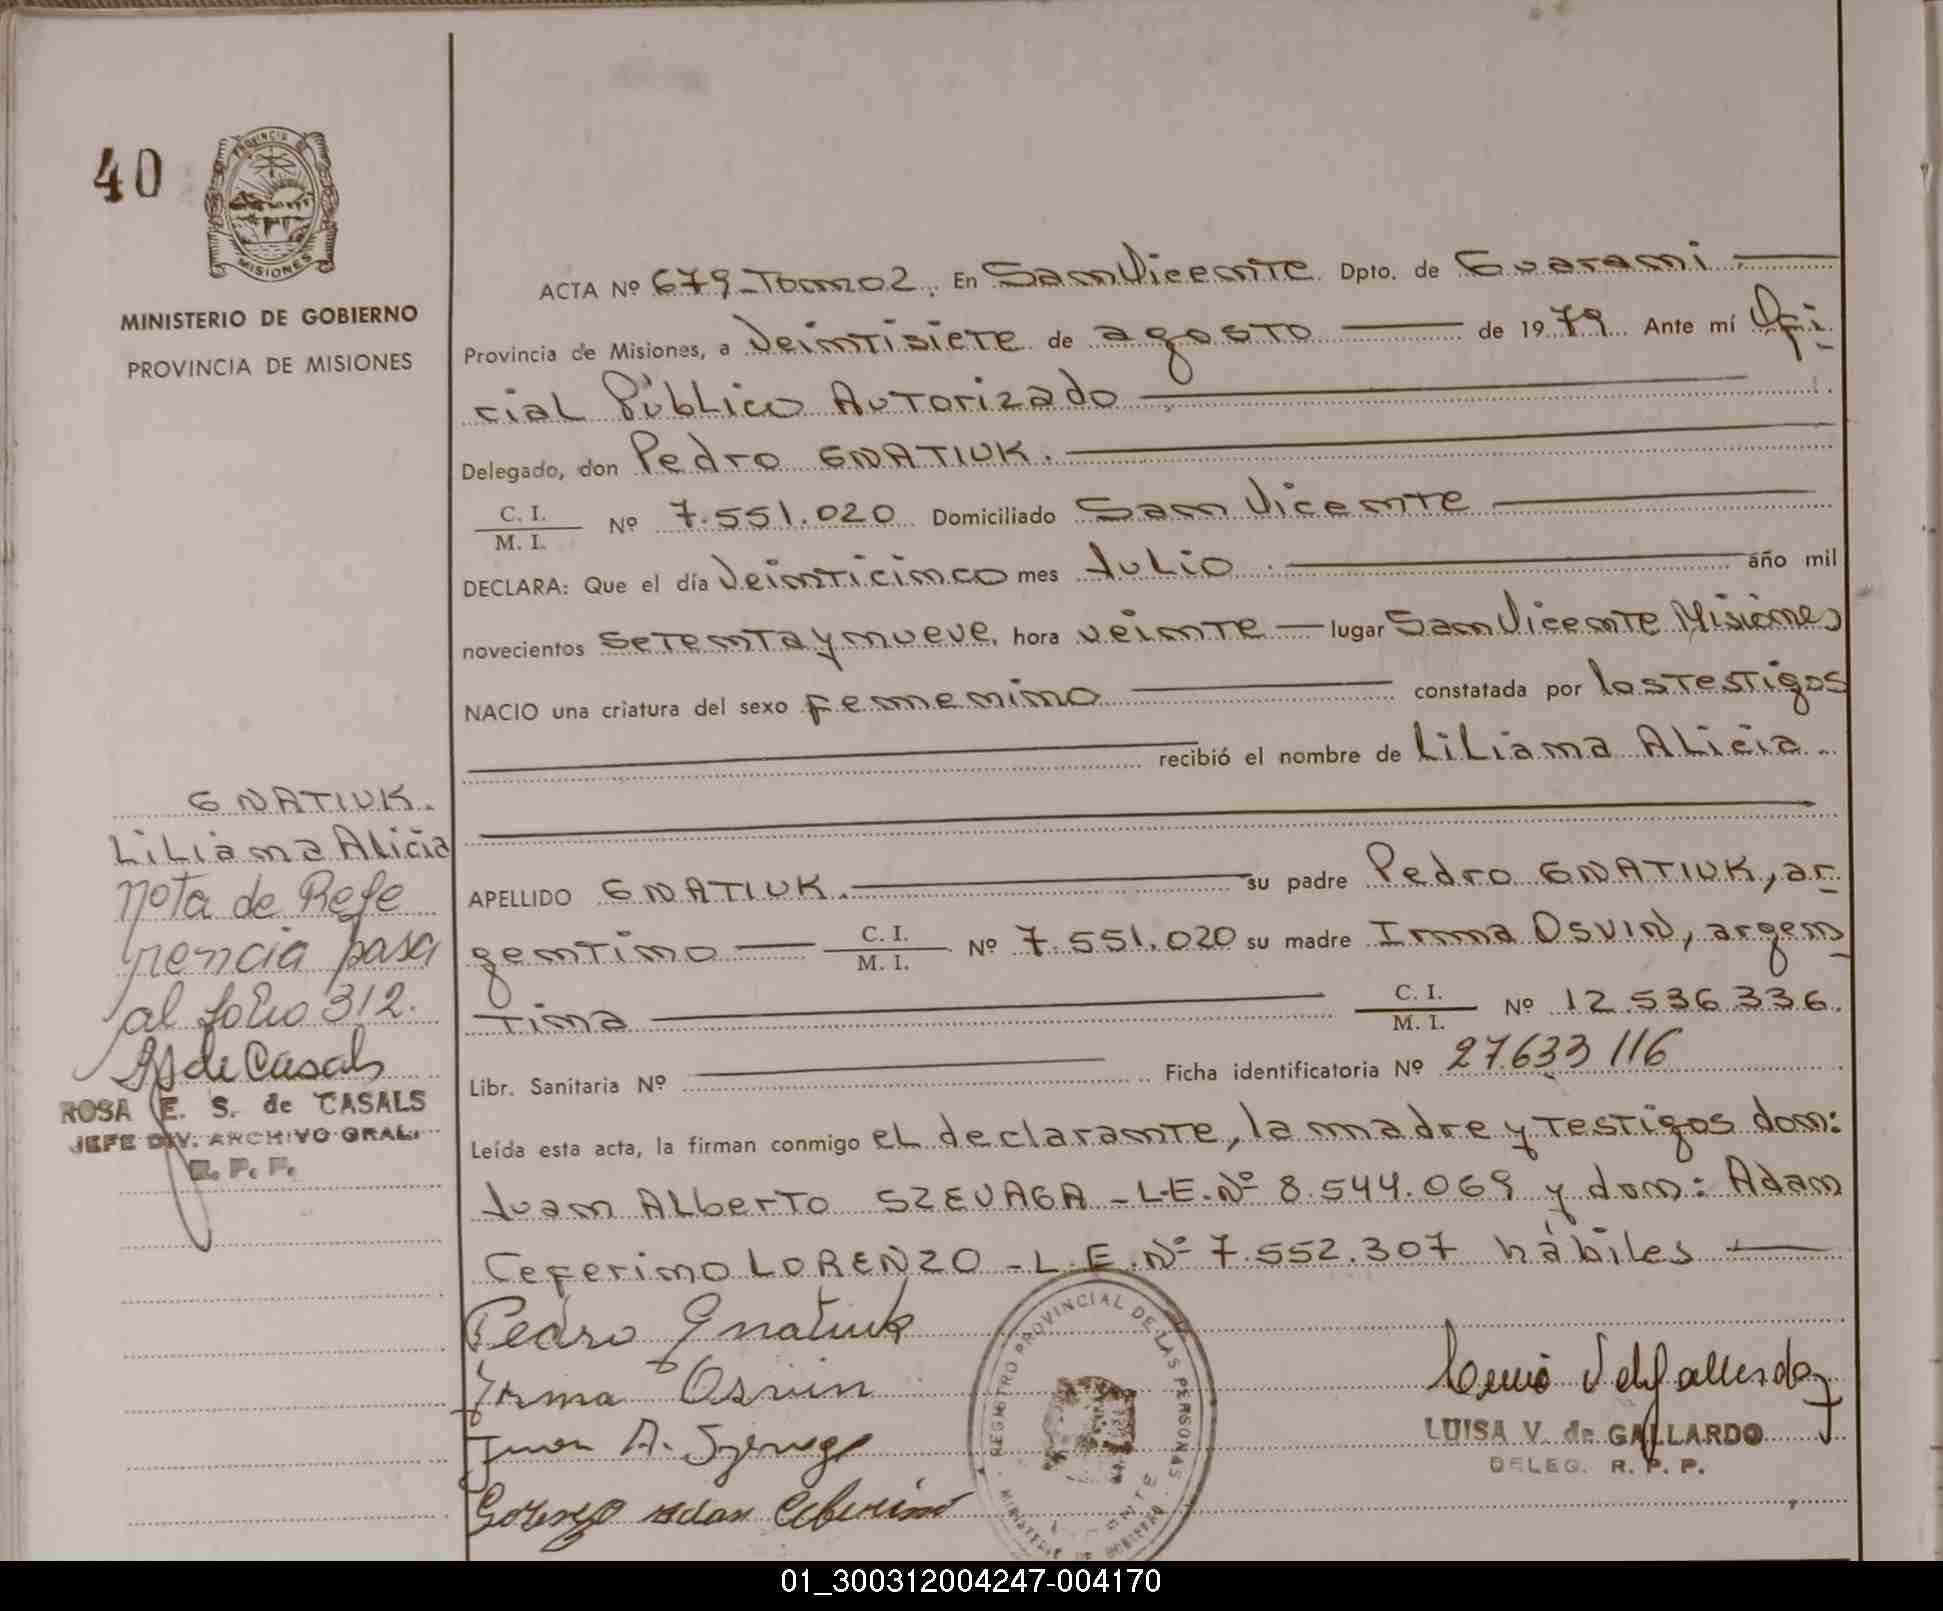 40
PROVINCIA DE
MISIONES
MINISTERIO DE GOBIERNO
PROVINCIA DE MISIONES
ACTA Nº 679-Tomo 2. En San Vicente Dpto. de Guaraní
Provincia de Misiones, a veintisiete de agosto de 1979. Ante mí Ofi-
cial Público Autorizado
Delegado, don Pedro GNATIUK.
C. I.
M. I. Nº 7.551.020 Domiciliado San Vicente
DECLARA: Que el día veinticinco mes Julio. año mil
novecientos setenta y nueve, hora veinte lugar San Vicente Misiones
NACIO una criatura del sexo femenino constatada por los testigos
recibió el nombre de Liliana Alicia.
APELLIDO GNATIUK. su padre Pedro GNATIUK, ar-
gentino C. I.
M. I. Nº 7.551.020 su madre Irma OSVIN, argen-
tina C. I.
M. I. Nº 12.536.336.
Libr. Sanitaria Nº Ficha identificatoria Nº 27.633 116
Leída esta acta, la firman conmigo el declarante, la madre y testigos don:
Juan Alberto SZEVAGA - L.E. Nº 8.544.069 y don: Adam
Ceferino LORENZO - L.E. Nº 7.552.307 hábiles
GNATIUK.
Liliana Alicia
Nota de Refe
rencia pasa
al folio 312.
de Casals
ROSA E. S. de CASALS
JEFE DIV. ARCHIVO GRAL.
R. P. P.
Pedro Gnatiuk
Irma Osvin
Juan A. Szevaga
Lorenzo Adan Ceferino
REGISTRO PROVINCIAL DE LAS PERSONAS
MINISTERIO DE GOBIERNO
LUISA V. de GALLARDO
DELEG. R. P. P.
01_300312004247-004170